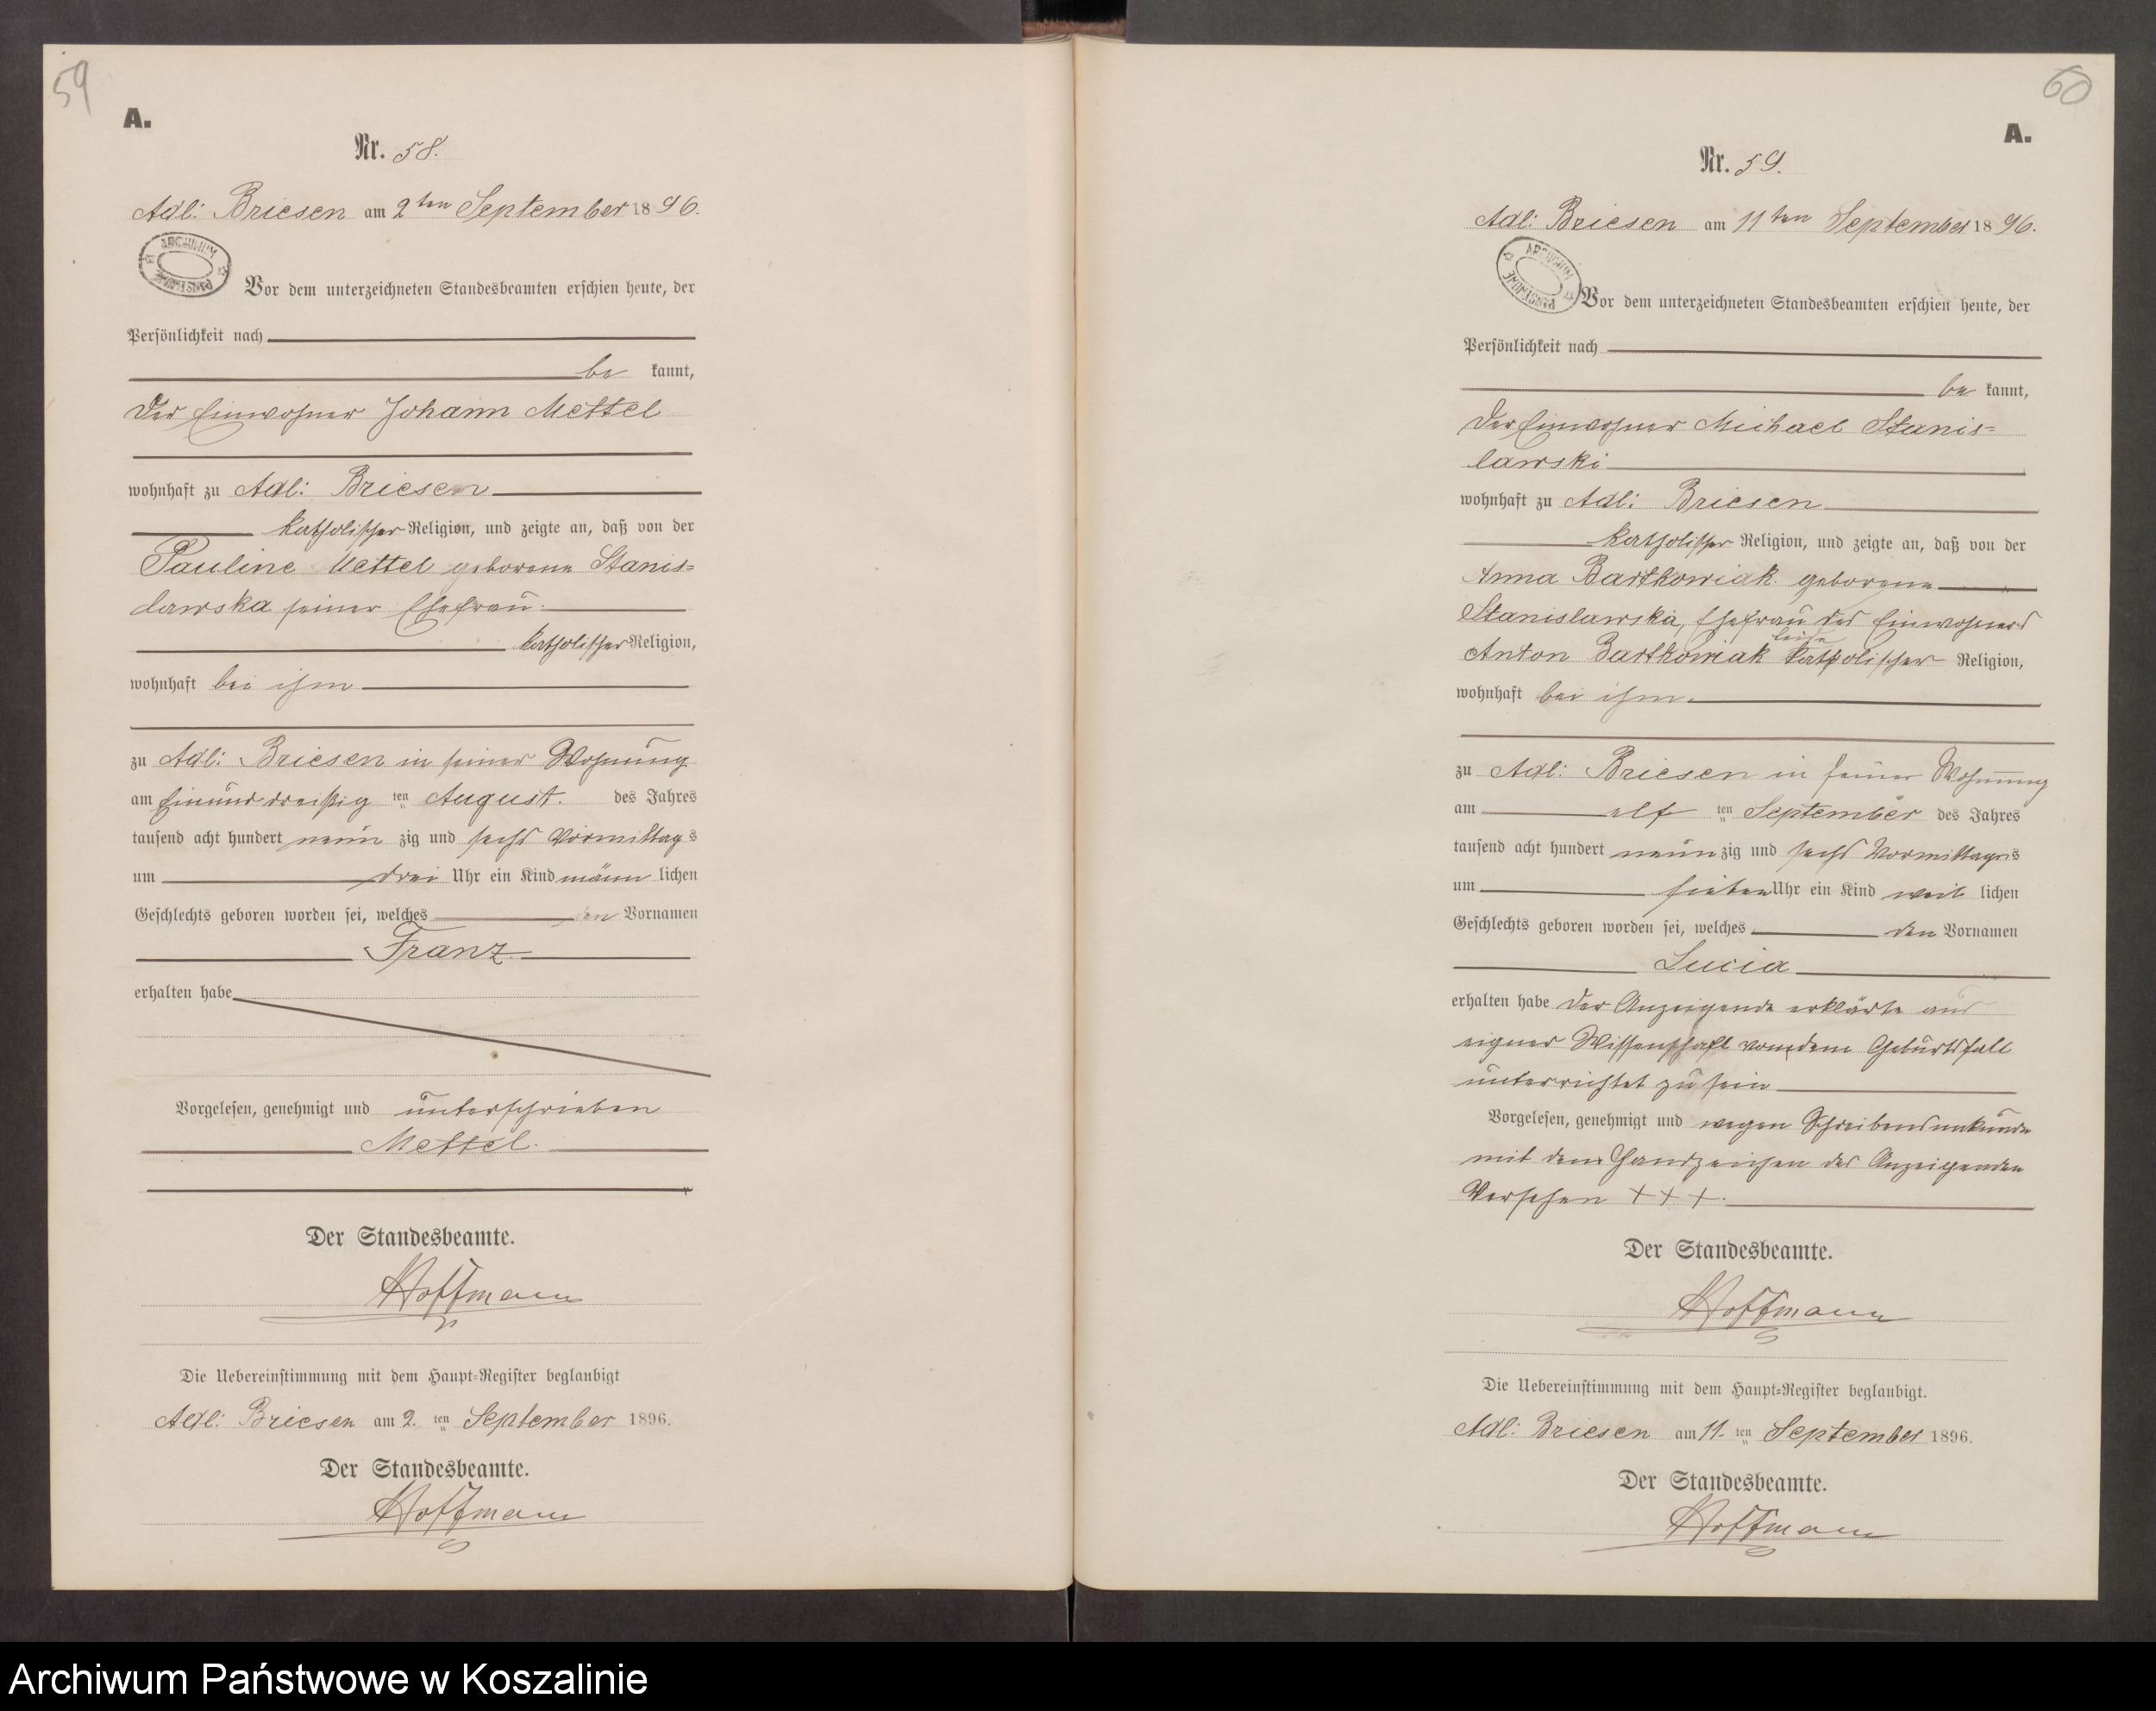 59
A.
Nr. 58.
Adl: Briesen am 2ten September 1896.
ARCHIWUM PAŃSTWOWE
Vor dem unterzeichneten Standesbeamten erschien heute, der
Persönlichkeit nach
be kannt,
der Einwohner Johann Mettel
wohnhaft zu Adl: Briesen
katholischer Religion, und zeigte an, daß von der
Pauline Mettel geborene Stanis=
lawska seiner Ehefrau
katholischer Religion,
wohnhaft bei ihm
zu Adl: Briesen in seiner Wohnung
am Einunddreißig ten August. des Jahres
tausend acht hundert neun zig und sechs Vormittags
um drei Uhr ein Kind männ lichen
Geschlechts geboren worden sei, welches den Vornamen
Franz
erhalten habe
Vorgelesen, genehmigt und unterschrieben
Mettel.
Der Standesbeamte.
Hoffmann
Die Uebereinstimmung mit dem Haupt=Register beglaubigt
Adl: Briesen am 2. ten September 1896.
Der Standesbeamte.
Hoffmann
60
A.
Nr. 59.
Adl: Briesen am 11ten September 1896.
ARCHIWUM PAŃSTWOWE
Vor dem unterzeichneten Standesbeamten erschien heute, der
Persönlichkeit nach
be kannt,
der Einwohner Michael Stanis=
lawski
wohnhaft zu Adl: Briesen
katholischer Religion, und zeigte an, daß von der
Anna Bartkowiak geborene
Stanislawska, Ehefrau des Einwohners
beide
Anton Bartkowiak katholischer Religion,
wohnhaft bei ihm.
zu Adl: Briesen in seiner Wohnung
am elf ten September des Jahres
tausend acht hundert neun zig und sechs Vormittags
um sieben Uhr ein Kind weib lichen
Geschlechts geboren worden sei, welches den Vornamen
Lucia
erhalten habe der Anzeigende erklärte aus
eigner Wissenschaft von dem Geburtsfall
unterrichtet zu sein
Vorgelesen, genehmigt und wegen Schreibensunkunde
mit dem Handzeichen des Anzeigenden
Versehen + + +.
Der Standesbeamte.
Hoffmann
Die Uebereinstimmung mit dem Haupt=Register beglaubigt.
Adl: Briesen am 11. ten September 1896.
Der Standesbeamte.
Hoffmann
Archiwum Państwowe w Koszalinie